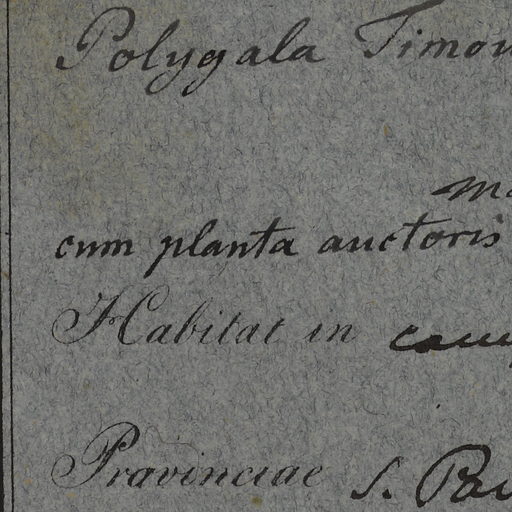 Polygala Timou
cum planta auctoris
Habitat in
Provinciae S.